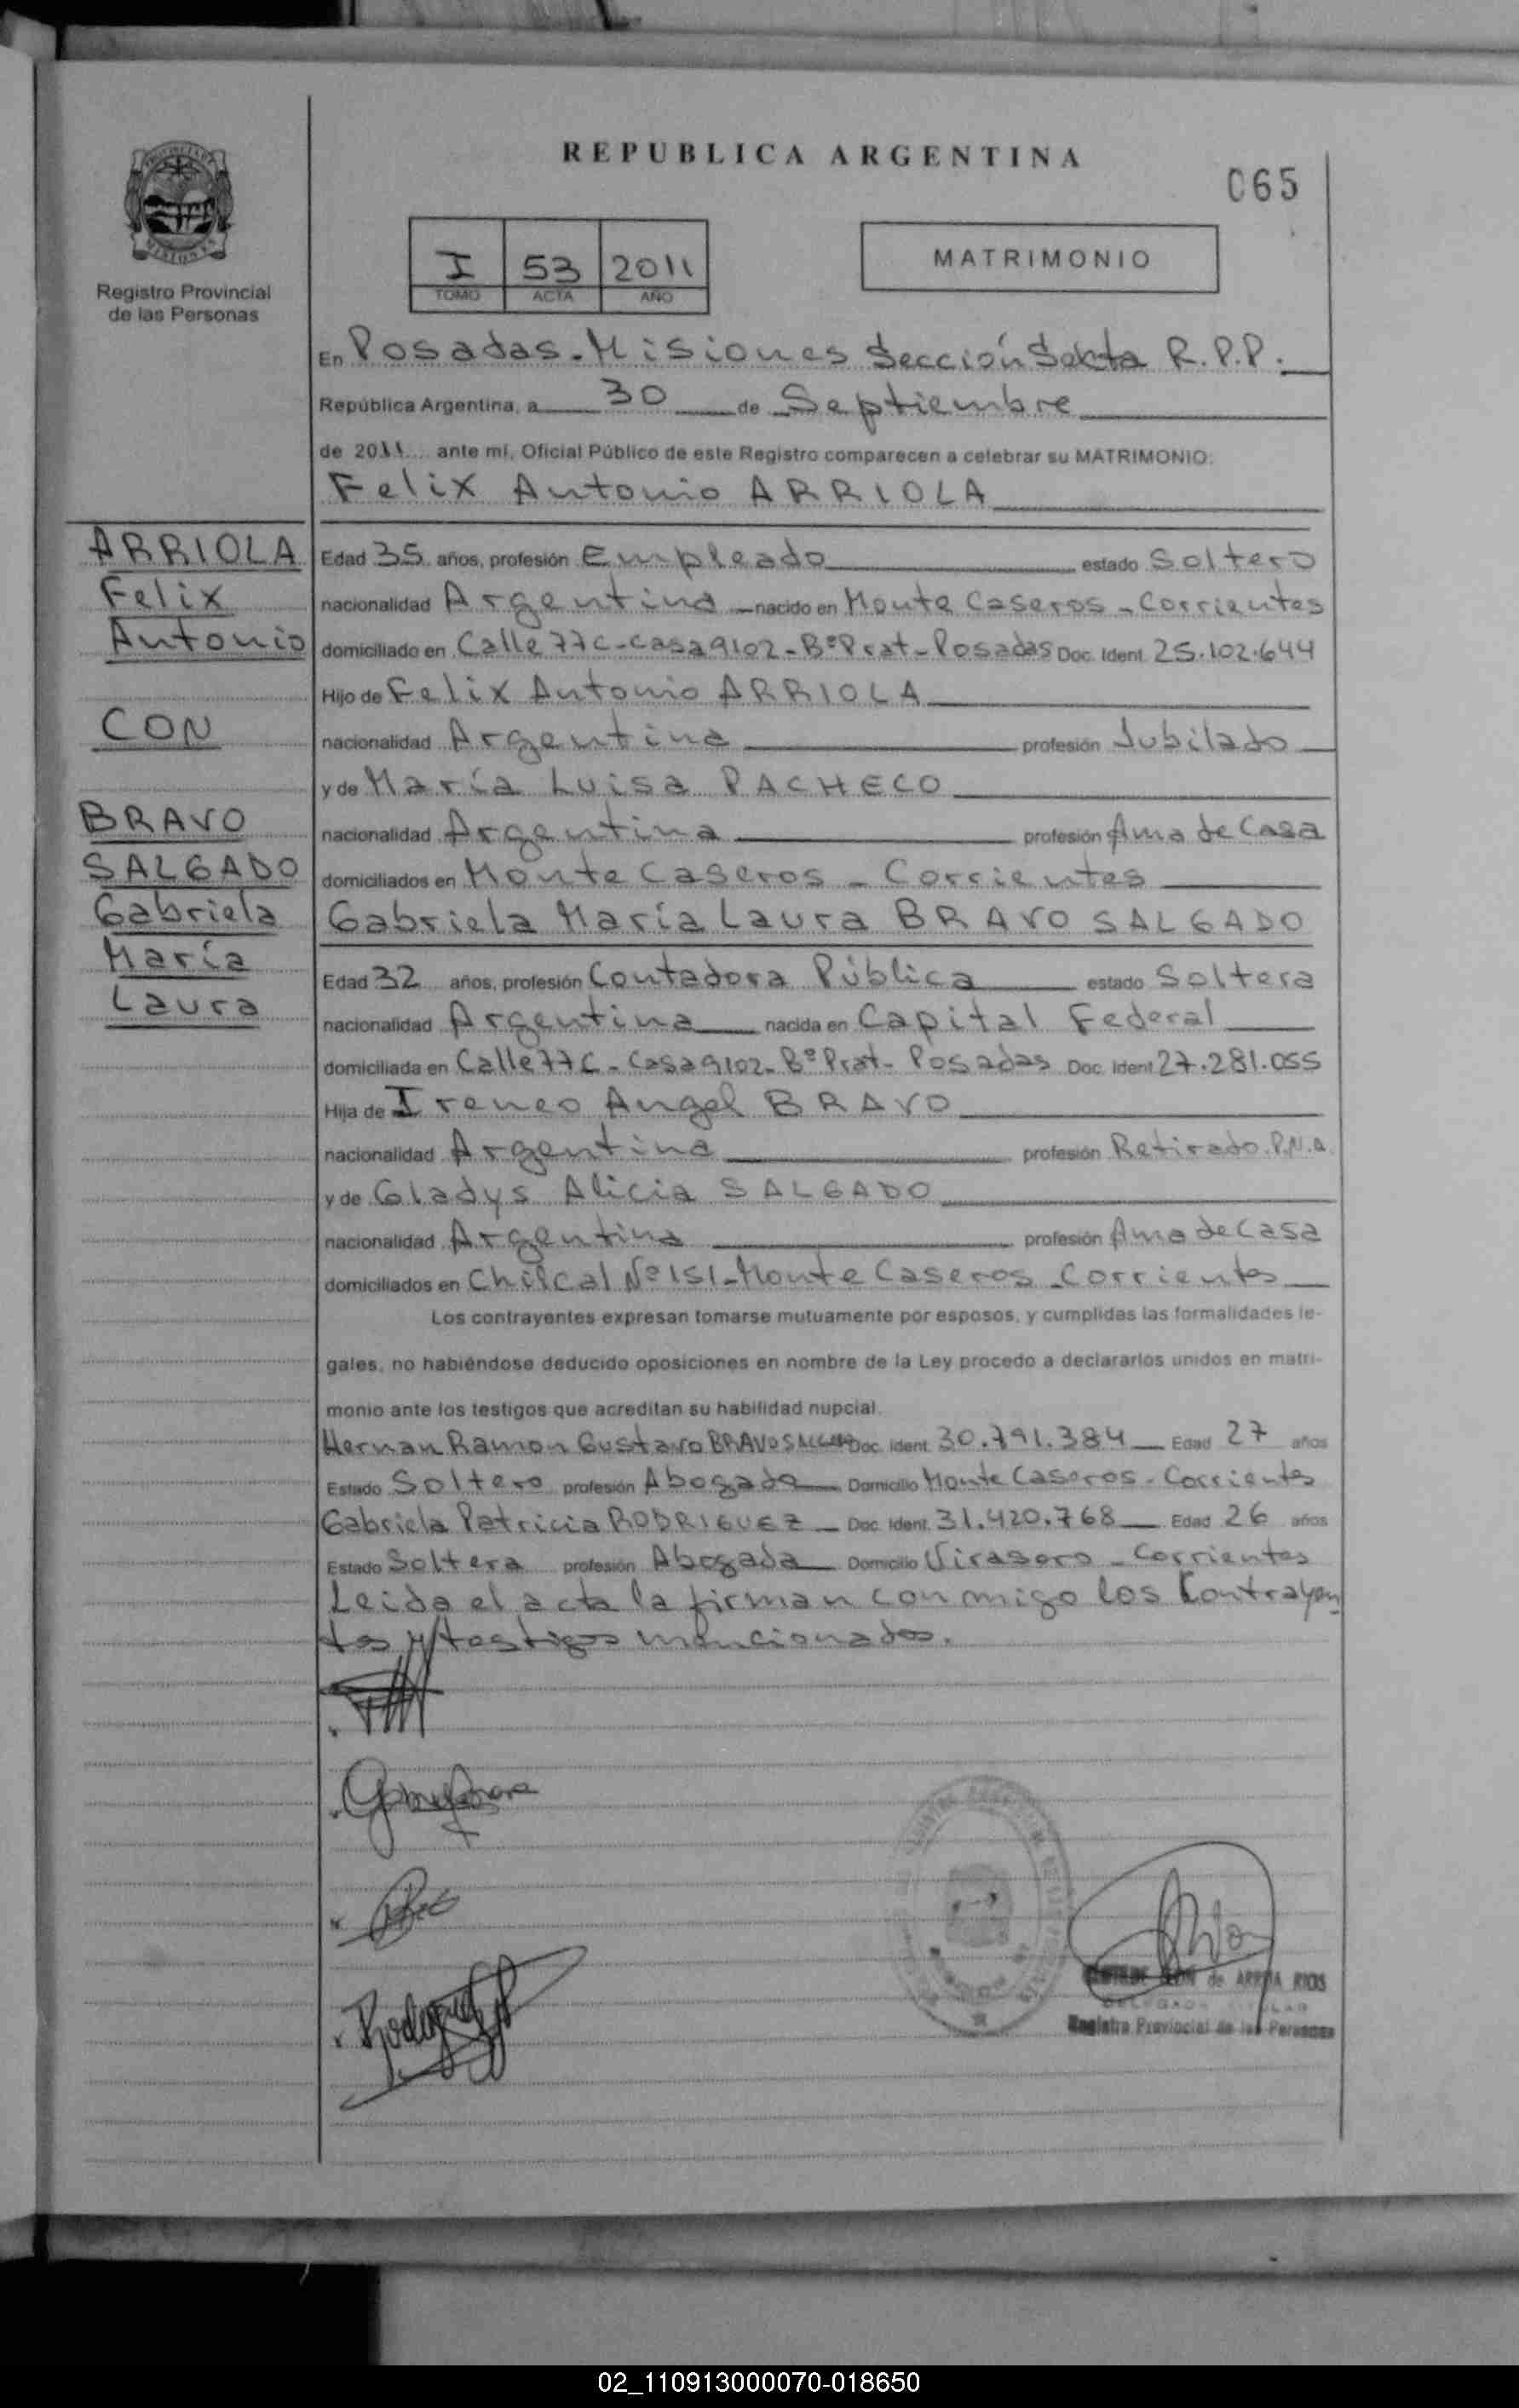 REPUBLICA ARGENTINA
065
I 53 2011
TOMO ACTA AÑO
MATRIMONIO
Registro Provincial
de las Personas
En Posadas-Misiones Sección Sexta R.P.P.
República Argentina, a 30 de Septiembre
de 2011 ante mí, Oficial Público de este Registro comparecen a celebrar su MATRIMONIO:
Felix Antonio ARRIOLA
ARRIOLA
Felix
Antonio
CON
BRAVO
SALGADO
Gabriela
María
Laura
Edad 35 años, profesión Empleado estado Soltero
nacionalidad Argentina nacido en Monte Caseros - Corrientes
domiciliado en Calle 77C-casa 9102-Bº Prat-Posadas Doc. Ident. 25.102.644
Hijo de Felix Antonio ARRIOLA
nacionalidad Argentina profesión Jubilado
y de María Luisa PACHECO
nacionalidad Argentina profesión Ama de Casa
domiciliados en Monte Caseros - Corrientes
Gabriela María Laura BRAVO SALGADO
Edad 32 años, profesión Contadora Pública estado Soltera
nacionalidad Argentina nacida en Capital Federal
domiciliada en Calle 77C-Casa 9102-Bº Prat-Posadas Doc. Ident 27.281.055
Hija de Ireneo Angel BRAVO
nacionalidad Argentina profesión Retirado P.N.A.
y de Gladys Alicia SALGADO
nacionalidad Argentina profesión Ama de Casa
domiciliados en Chilcal Nº 151-Monte Caseros-Corrientes
Los contrayentes expresan tomarse mutuamente por esposos, y cumplidas las formalidades le-
gales, no habiéndose deducido oposiciones en nombre de la Ley procedo a declararlos unidos en matri-
monio ante los testigos que acreditan su habilidad nupcial.
Hernan Ramon Gustavo BRAVO SALGADO Doc. Ident. 30.791.384 Edad 27 años
Estado Soltero profesión Abogado Domicilio Monte Caseros-Corrientes
Gabriela Patricia RODRIGUEZ Doc. Ident. 31.420.768 Edad 26 años
Estado Soltera profesión Abogada Domicilio Virasoro - Corrientes
Leida el acta la firman conmigo los Contrayen
tes y testigos mencionados.
de ARRUA RIOS
Registro Provincial de las Personas
02_110913000070-018650